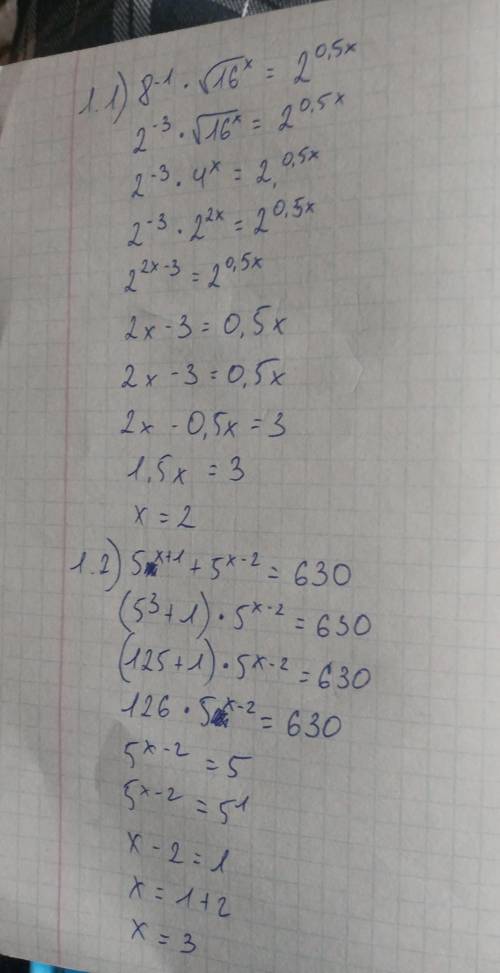 1.1) 8⁻¹ · √16ˣ = 2^0,5x
2⁻³ · √16ˣ = 2^0,5x
2⁻³ · 4ˣ = 2^0,5x
2⁻³ · 2^2x = 2^0,5x
2^2x-3 = 2^0,5x
2x - 3 = 0,5x
2x - 3 = 0,5x
2x - 0,5x = 3
1,5x = 3
x = 2
1.2) 5^x+1 + 5^x-2 = 630
(5³ + 1) · 5^x-2 = 630
(125 + 1) · 5^x-2 = 630
126 · 5^x-2 = 630
5^x-2 = 5
5^x-2 = 5¹
x - 2 = 1
x = 1 + 2
x = 3